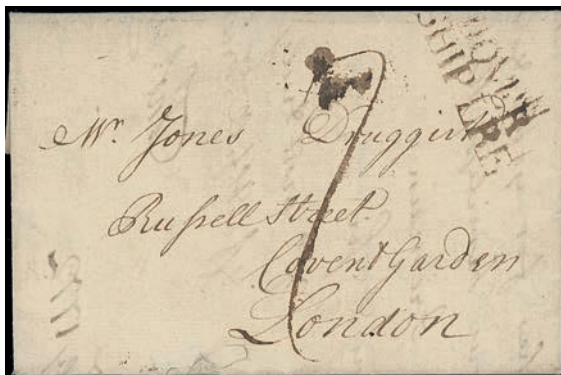 DOVER
SHIP LRE
7
Mr. Jones Druggist
Russell Street
Covent Garden
London